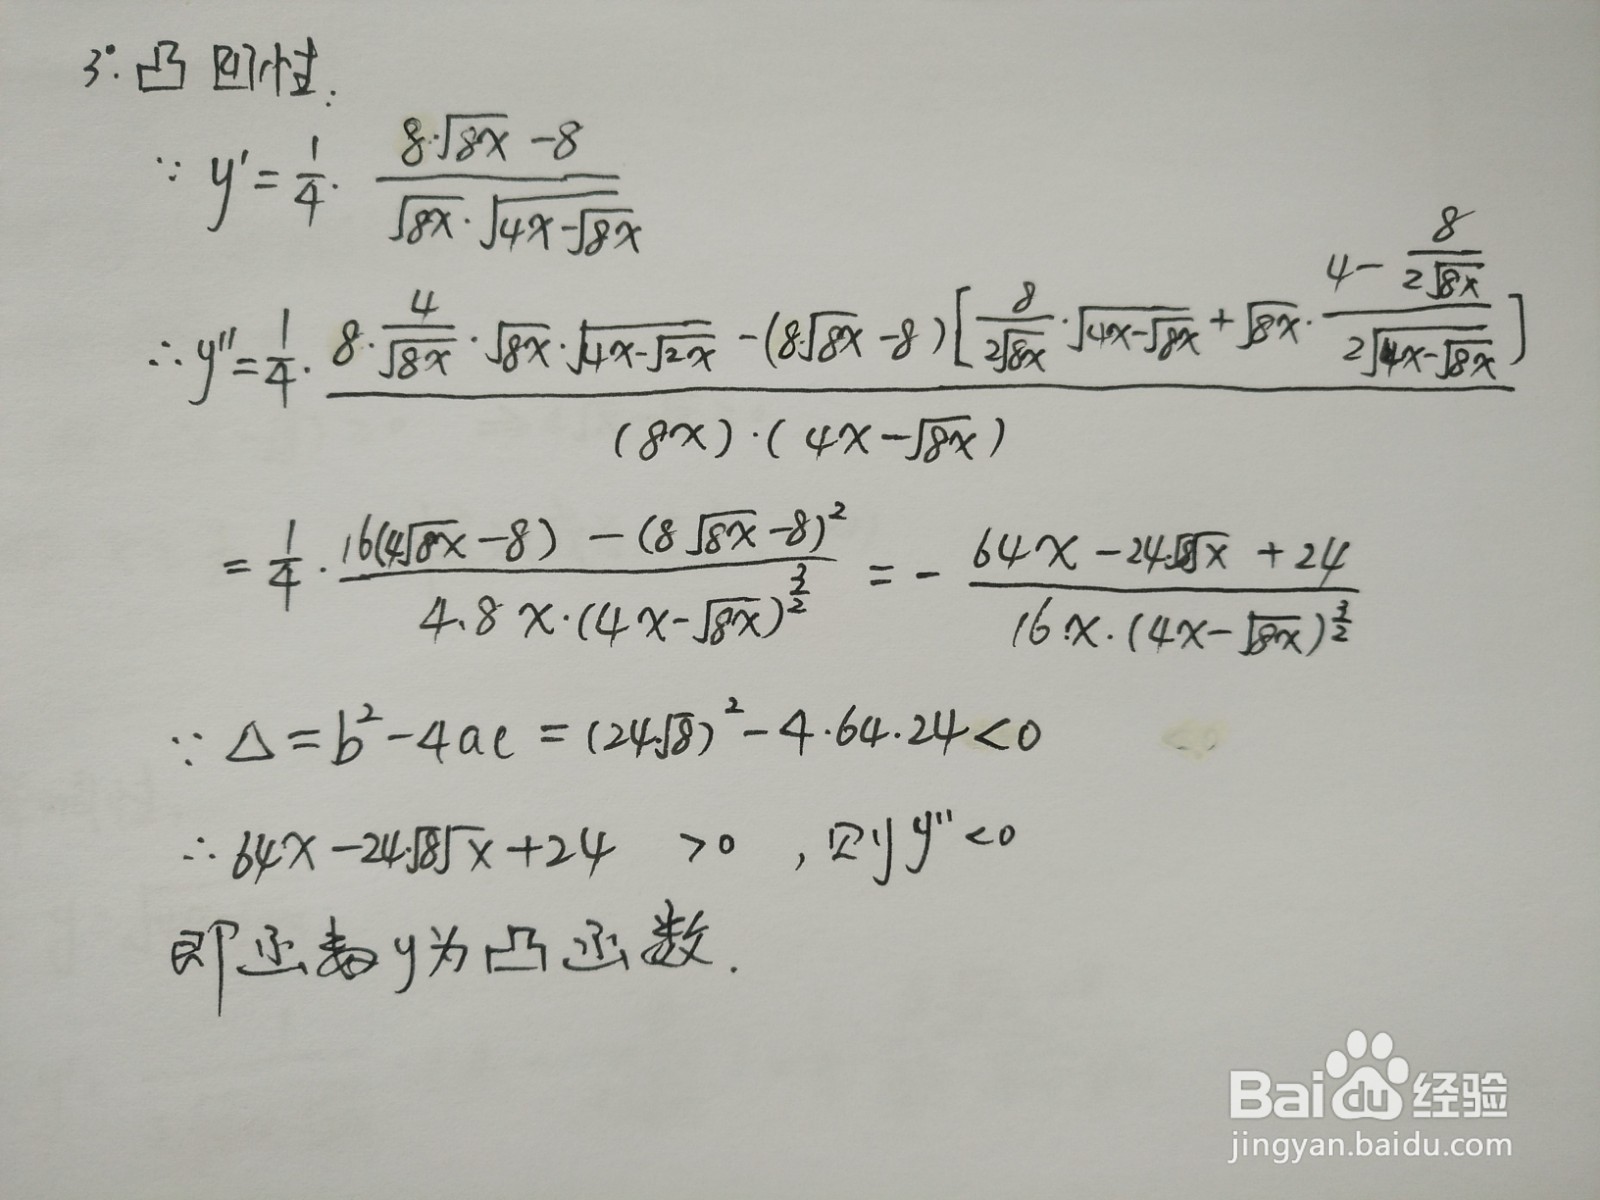 3°. 凸凹性:
∵ y' = 1/4 · (8·√(8x) - 8) / (√(8x) · √(4x-√(8x)))
∴ y'' = 1/4 · (8 · 4/√(8x) · √(8x) · √(4x-√(2x)) - (8√(8x) - 8) [8/(2√(8x)) · √(4x-√(8x)) + √(8x) · (4 - 8/(2√(8x))) / (2√(4x-√(8x)))]) / ((8x)·(4x-√(8x)))
= 1/4 · (16(4√(8x) - 8) - (8√(8x) - 8)²) / (4.8x·(4x-√(8x))^(3/2)) = - (64x - 24√8√x + 24) / (16x·(4x-√(8x))^(3/2))
∵ △ = b² - 4ac = (24√8)² - 4·64·24 < 0
∴ 64x - 24√8√x + 24 > 0 , 则 y'' < 0
即函数y为凸函数.
Baidu经验
jingyan.baidu.com